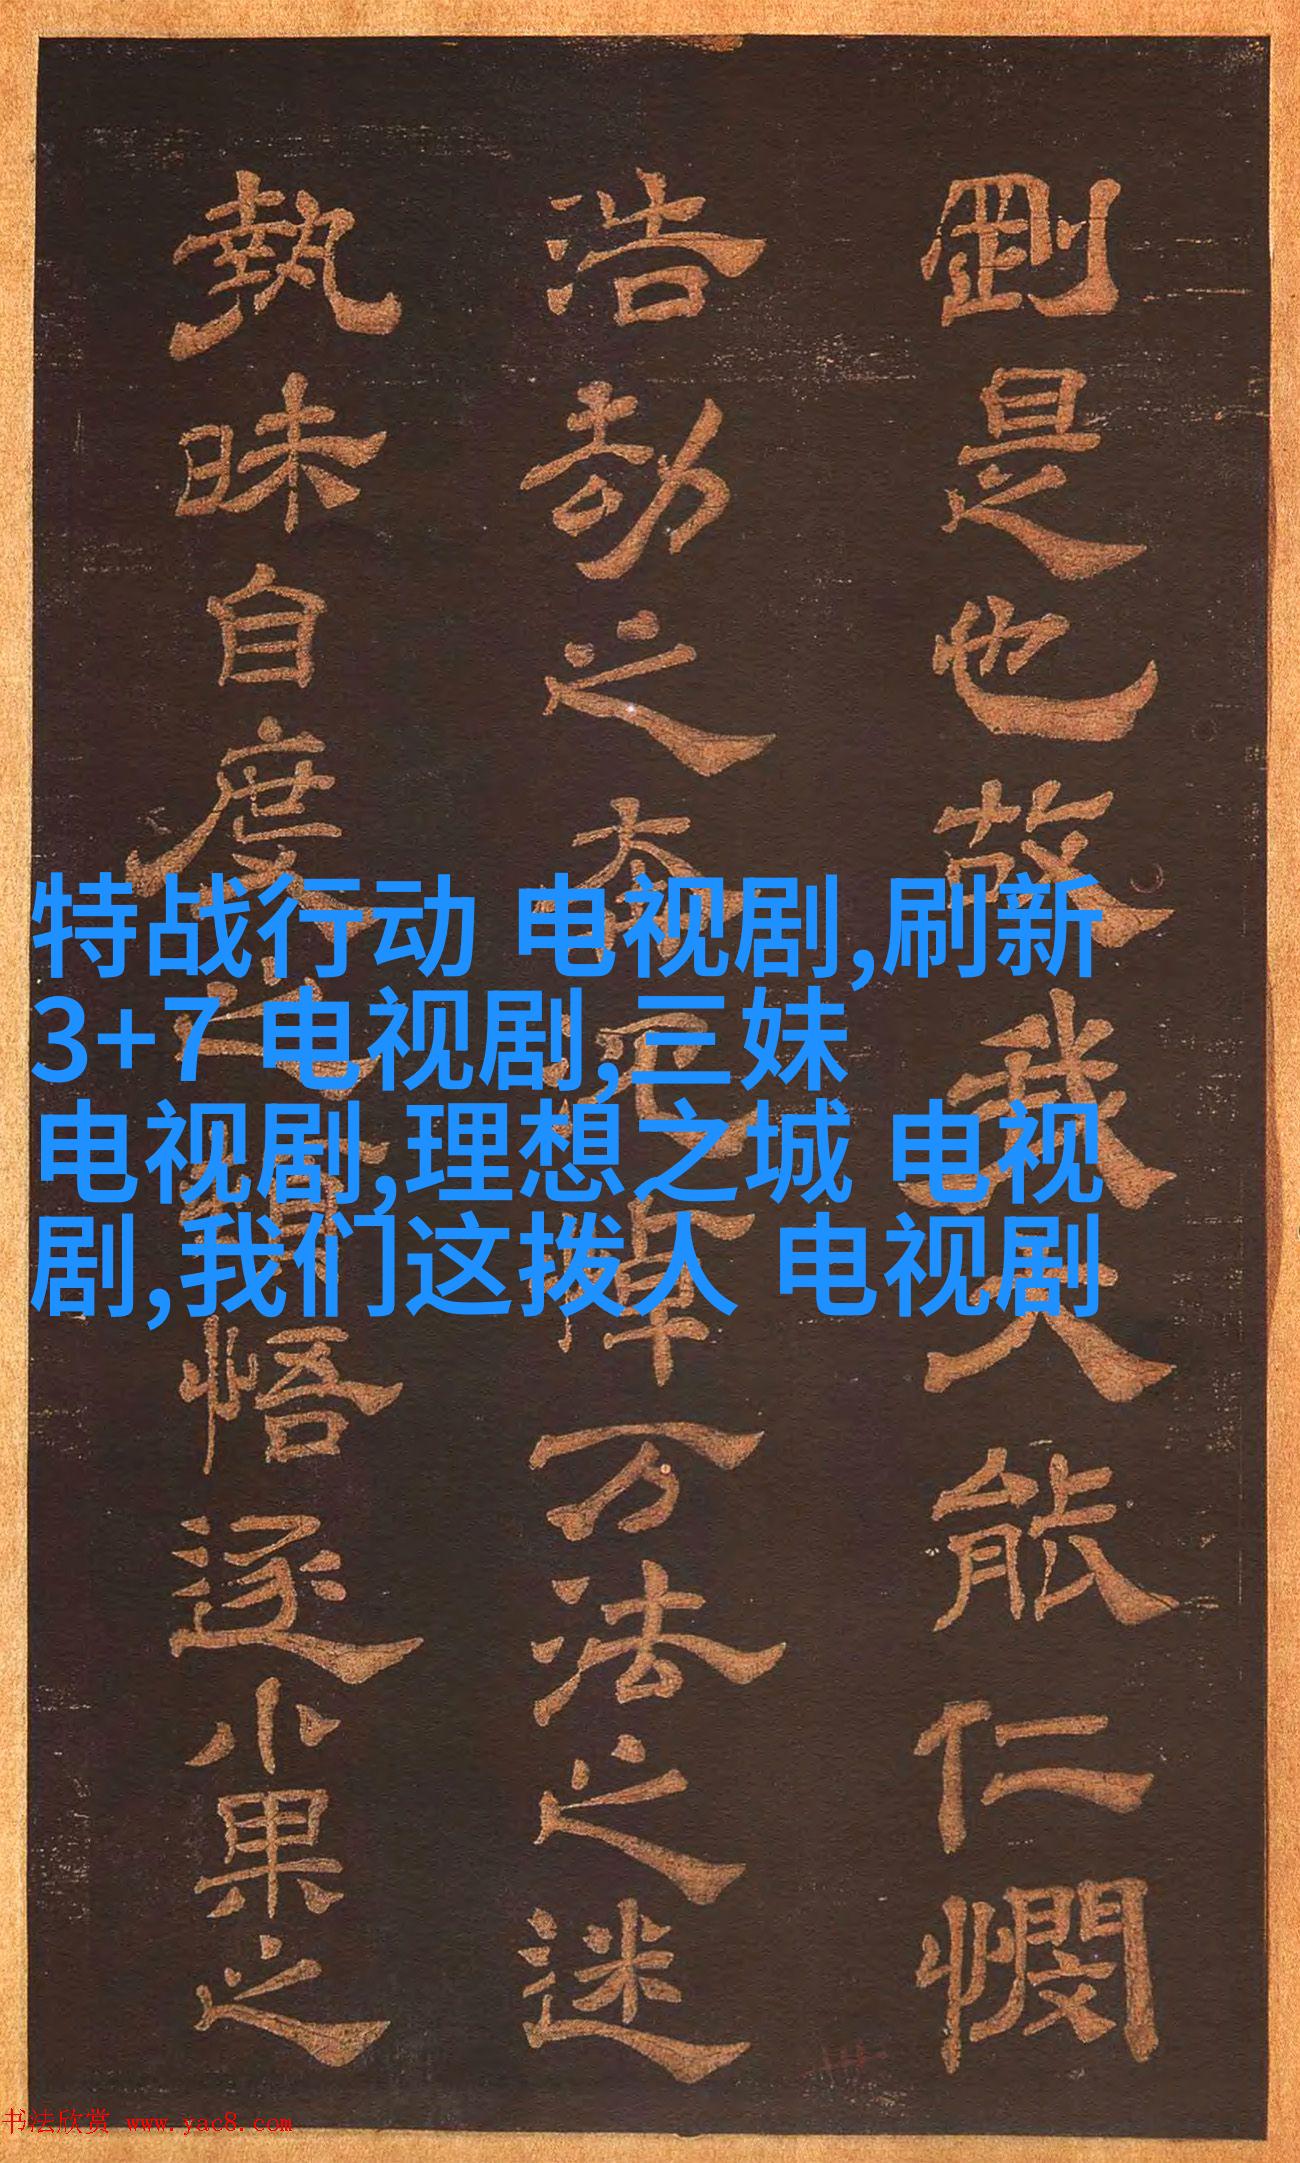 剛是也故我能仁憫
浩劫之太悼万法之迷
執昧自度之悟遂小果之
特战行动 电视剧,刷新
3+7 电视剧,三妹
电视剧,理想之城 电视
剧,我们这拨人 电视剧
书法欣赏 www.yac8.com